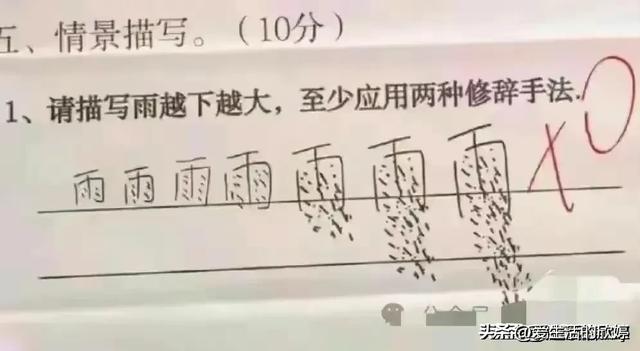 五、情景描写。（10分）
1、请描写雨越下越大，至少应用两种修辞手法.
雨 雨 雨 雨 雨 雨 雨 × 0
头条 @爱生活的欣婷